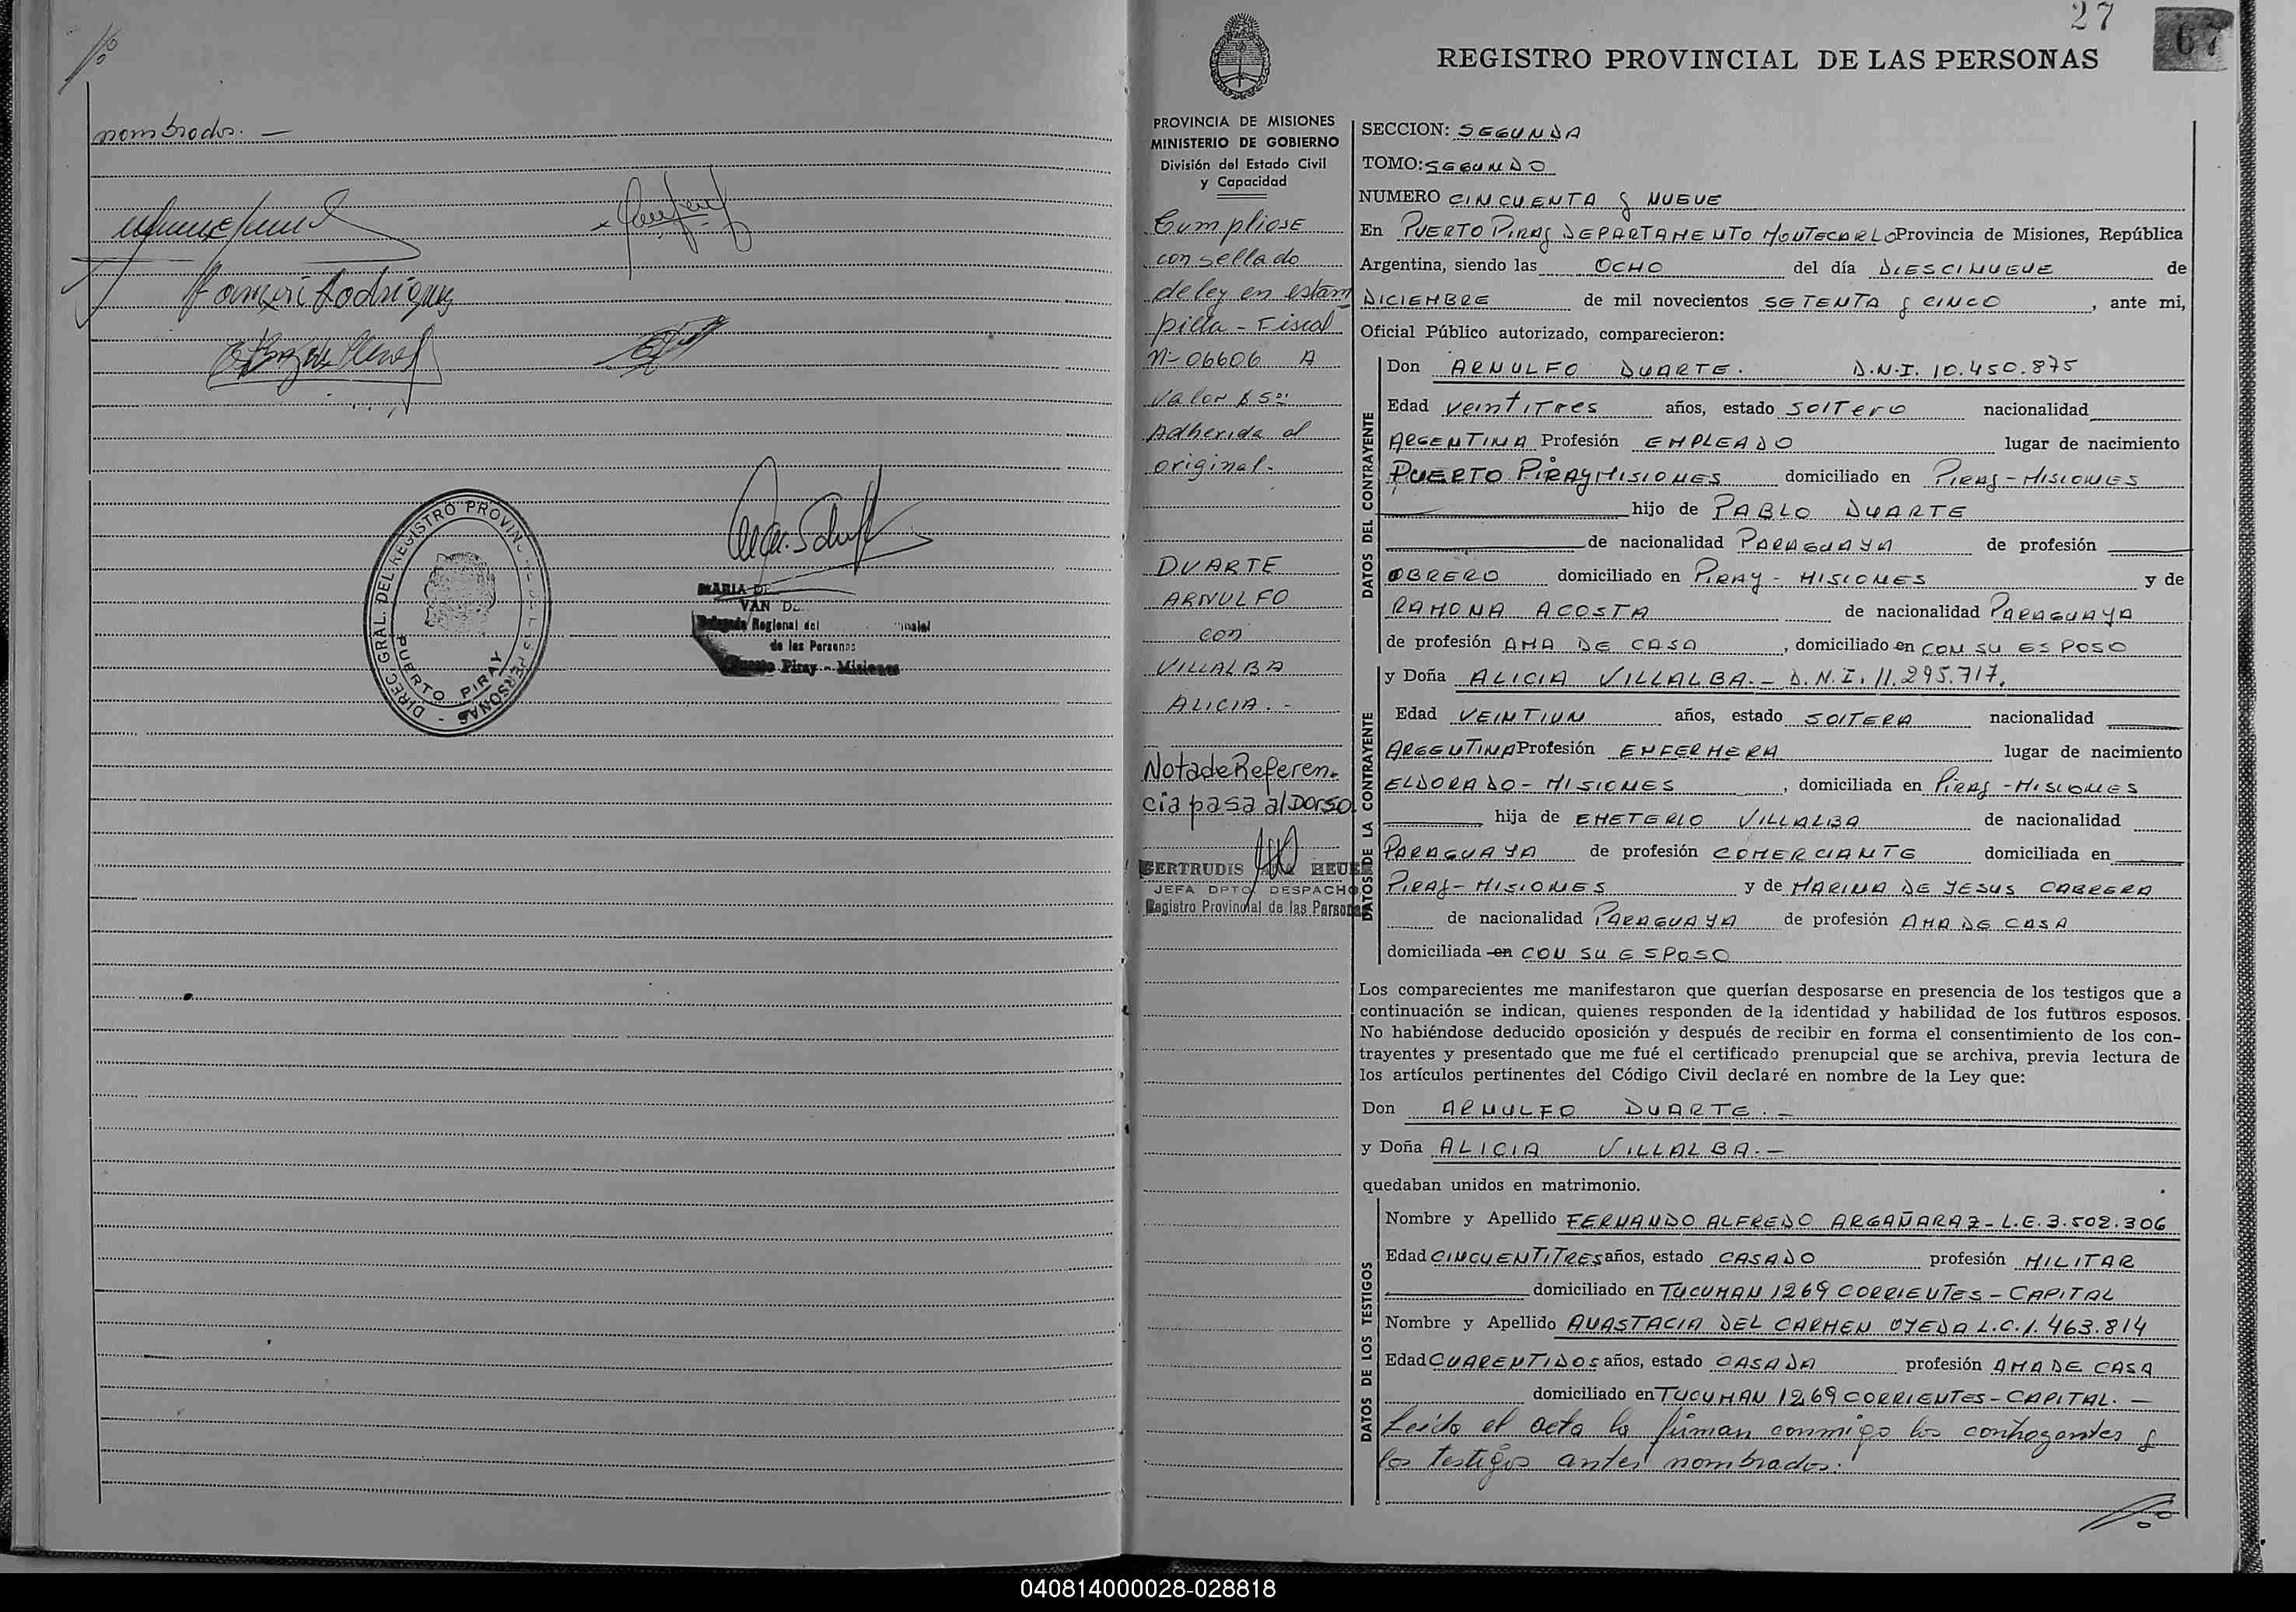 nombrados. —
Ramiri Rodriguez
DIREC. GRAL. DEL REGISTRO PROVINC. DE LAS PERSONAS -
PUERTO PIRAY
MARIA DE
VAN DE
Delegada Regional del
de las Personas
Puerto Piray - Misiones
27
67
REGISTRO PROVINCIAL DE LAS PERSONAS
PROVINCIA DE MISIONES
MINISTERIO DE GOBIERNO
División del Estado Civil
y Capacidad
Cumpliose
con sellado
de ley en estam
pilla - Fiscal
Nº 06606 A
Valor $ 5
Adherida al
original-
DUARTE
ARNULFO
con
VILLALBA
ALICIA. -
Nota de Referen-
cia pasa al Dorso
GERTRUDIS
JEFA DPTO. DESPACHO
Registro Provincial de las Personas
SECCION: SEGUNDA
TOMO: SEGUNDO
NUMERO CINCUENTA y NUEVE
En PUERTO PIRAY DEPARTAMENTO MONTECARLO Provincia de Misiones, República
Argentina, siendo las OCHO del día DIESCINUEVE de
DICIEMBRE de mil novecientos SETENTA y CINCO, ante mi,
Oficial Público autorizado, comparecieron:
DATOS DEL CONTRAYENTE
Don ARNULFO DUARTE. D.N.I. 10.450.875
Edad veintitres años, estado solTero nacionalidad
ARGENTINA Profesión EMPLEADO lugar de nacimiento
PUERTO PIRAY MISIONES domiciliado en PIRAY - MISIONES
hijo de PABLO DUARTE
de nacionalidad PARAGUAYA de profesión
OBRERO domiciliado en PIRAY - MISIONES y de
RAMONA ACOSTA de nacionalidad PARAGUAYA
de profesión AMA DE CASA, domiciliado en CON SU ESPOSO
DATOS DE LA CONTRAYENTE
y Doña ALICIA VILLALBA. - D.N.I. 11.295.717.
Edad VEINTIUN años, estado SOLTERA nacionalidad
ARGENTINA Profesión ENFERMERA lugar de nacimiento
ELDORADO - MISIONES, domiciliada en PIRAY - MISIONES
hija de EMETERIO VILLALBA de nacionalidad
PARAGUAYA de profesión COMERCIANTE domiciliada en
PIRAY - MISIONES y de MARINA DE JESUS CABRERA
de nacionalidad PARAGUAYA de profesión AMA DE CASA
domiciliada en CON SU ESPOSO
Los comparecientes me manifestaron que querían desposarse en presencia de los testigos que a
continuación se indican, quienes responden de la identidad y habilidad de los futuros esposos.
No habiéndose deducido oposición y después de recibir en forma el consentimiento de los con-
trayentes y presentado que me fué el certificado prenupcial que se archiva, previa lectura de
los artículos pertinentes del Código Civil declaré en nombre de la Ley que:
Don ARNULFO DUARTE. -
y Doña ALICIA VILLALBA. -
quedaban unidos en matrimonio.
DATOS DE LOS TESTIGOS
Nombre y Apellido FERNANDO ALFREDO ARGAÑARAZ - L.E. 3.502.306
Edad CINCUENTITRES años, estado CASADO profesión MILITAR
domiciliado en TUCUMAN 1269 CORRIENTES - CAPITAL
Nombre y Apellido ANASTACIA DEL CARMEN OJEDA L.C. 1.463.814
Edad CUARENTIDOS años, estado CASADA profesión AMA DE CASA
domiciliado en TUCUMAN 1269 CORRIENTES - CAPITAL. -
Leída el acta la firman conmigo los contrayentes y
los testigos antes nombrados.
040814000028-028818